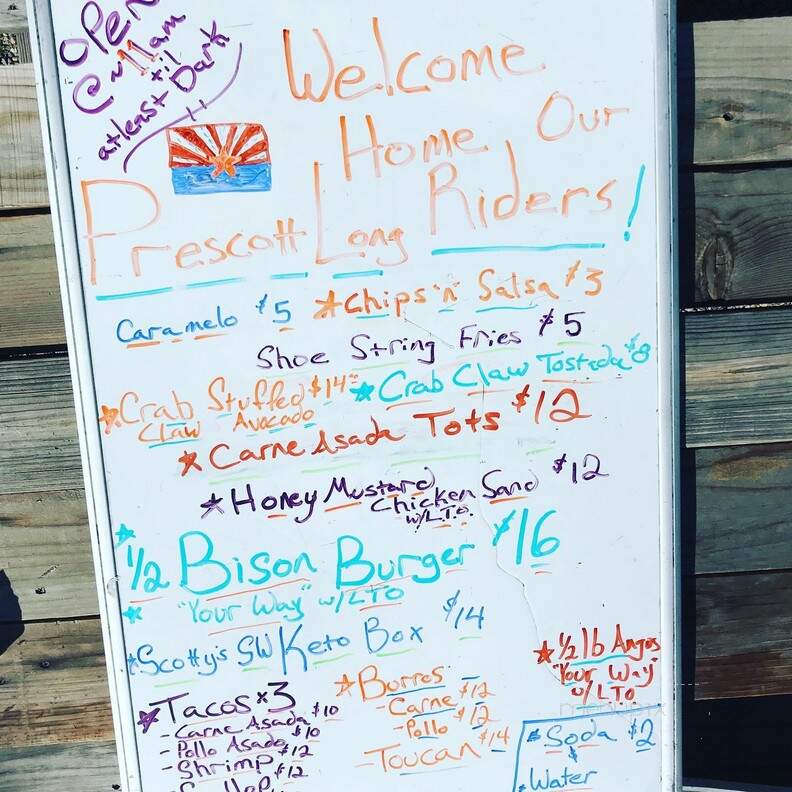 OPEN
@ ~11am
til
at least Dark
Welcome
Home Our
Prescott Long Riders!
Caramelo $5 Chips 'n' Salsa $3
Shoe String Fries $5
Crab Stuffed $14 Crab Claw Tostada $8
Claw Avacado
Carne Asada Tots $12
Honey Mustard Chicken Sand $12
w/L.T.O.
1/2 Bison Burger $16
"Your Way" w/LTO
Scotty's SW Keto Box $14
1/2 lb Angus
"Your Way"
w/LTO
Tacos x3
- Carne Asada $10
- Pollo Asado $10
- Shrimp $12
Burros
- Carne $12
- Pollo $12
- Toucan $14
Soda $2
&
Water